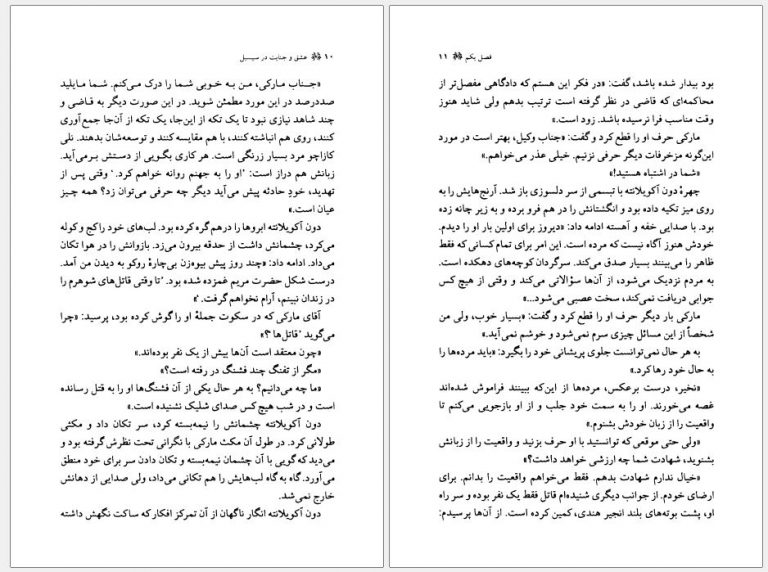 ۱۰ عشق و جنایت در سیسیل
«جناب مارکی، من به خوبی شما را درک می‌کنم. شما مایلید
صددرصد در این مورد مطمئن شوید. در این صورت دیگر به قاضی و
چند شاهد نیازی نبود تا یک تکه از این‌جا، یک تکه از آن‌جا جمع‌آوری
کنند، روی هم انباشته کنند، با هم مقایسه کنند و توسعه‌شان بدهند. نلی
کازاچو مرد بسیار زرنگی است. هر کاری بگویی از دستش بر می‌آید.
زبانش هم دراز است: 'او را به جهنم روانه خواهم کرد.' وقتی پس از
تهدید، خودِ حادثه پیش می‌آید دیگر چه حرفی می‌توان زد؟ همه چیز
عیان است.»
دون آکویلانته ابروها را درهم گره کرده بود. لب‌های خود را کج و کوله
می‌کرد، چشمانش داشت از حدقه بیرون می‌زد. بازوانش را در هوا تکان
می‌داد. ادامه داد: «چند روز پیش بیوه‌زن بی‌چارهٔ روکو به دیدن من آمد.
درست شکل حضرت مریم غمزده شده بود. 'تا وقتی قاتل‌های شوهرم را
در زندان نبینم، آرام نخواهم گرفت.'»
آقای مارکی که در سکوت جملهٔ او را گوش کرده بود، پرسید: «چرا
می‌گوید 'قاتل‌ها'؟»
«چون معتقد است آن‌ها بیش از یک نفر بوده‌اند.»
«مگر از تفنگ چند فشنگ در رفته است؟»
«ما چه می‌دانیم؟ به هر حال یکی از آن فشنگ‌ها او را به قتل رسانده
است و در شب هیچ کس صدای شلیک نشنیده است.»
دون آکویلانته چشمانش را نیمه‌بسته کرد، سر تکان داد و مکثی
طولانی کرد. در طول آن مکث مارکی با نگرانی تحت نظرش گرفته بود و
می‌دید که گویی با آن چشمان نیمه‌بسته و تکان دادن سر برای خود منطق
می‌آورد. گاه به گاه لب‌هایش را هم تکانی می‌داد، ولی صدایی از دهانش
خارج نمی‌شد.
دون آکویلانته انگار ناگهان از آن تمرکز افکار که ساکت نگهش داشته
فصل یکم ۱۱
بود بیدار شده باشد، گفت: «در فکر این هستم که دادگاهی مفصل‌تر از
محاکمه‌ای که قاضی در نظر گرفته است ترتیب بدهم ولی شاید هنوز
وقت مناسب فرا نرسیده باشد. زود است.»
مارکی حرف او را قطع کرد و گفت: «جناب وکیل، بهتر است در مورد
این‌گونه مزخرفات دیگر حرفی نزنیم. خیلی عذر می‌خواهم.»
«شما در اشتباه هستید!»
چهرهٔ دون آکویلانته با تبسمی از سر دلسوزی باز شد. آرنج‌هایش را به
روی میز تکیه داده بود و انگشتانش را در هم فرو برده و به زیر چانه زده
بود. با صدایی خفه و آهسته ادامه داد: «دیروز برای اولین بار او را دیدم.
خودش هنوز آگاه نیست که مرده است. این امر برای تمام کسانی که فقط
ظاهر را می‌بینند بسیار صدق می‌کند. سرگردان کوچه‌های دهکده است.
به مردم نزدیک می‌شود، از آن‌ها سؤالاتی می‌کند و وقتی از هیچ کس
جوابی دریافت نمی‌کند، سخت عصبی می‌شود...»
مارکی بار دیگر حرف او را قطع کرد و گفت: «بسیار خوب، ولی من
شخصاً از این مسائل چیزی سرم نمی‌شود و خوشم نمی‌آید.»
به هر حال نمی‌توانست جلوی پریشانی خود را بگیرد: «باید مرده‌ها را
به حال خود رها کرد.»
«نخیر، درست برعکس، مرده‌ها از این‌که ببینند فراموش شده‌اند
غصه می‌خورند. او را به سمت خود جلب و از او بازجویی می‌کنم تا
واقعیت را از زبان خودش بشنوم.»
«ولی حتی موقعی که توانستید با او حرف بزنید و واقعیت را از زبانش
بشنوید، شهادت شما چه ارزشی خواهد داشت؟»
«خیال ندارم شهادت بدهم. فقط می‌خواهم واقعیت را بدانم. برای
ارضای خودم. از جوانب دیگری شنیده‌ام قاتل فقط یک نفر بوده و سر راه
او، پشت بوته‌های بلند انجیر هندی، کمین کرده است. از آن‌ها پرسیدم: